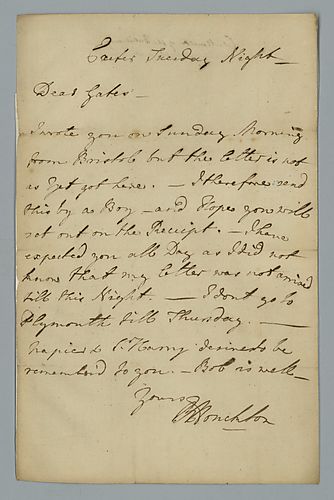 Exeter Tuesday Night —
Dear Gates —
I wrote you on Sunday Morning
from Bristol but the letter is not
as Yet got here. — I therefore send
this by a Boy — and Hope you will
set out on the Receipt. — I have
expected you all Day as I did not
know that my letter was not arrived
till this Night. — I don't go to
Plymouth till Thursday. —
Napier & desires to be
remember'd to you. — Bob is well —
Yours
Monckton